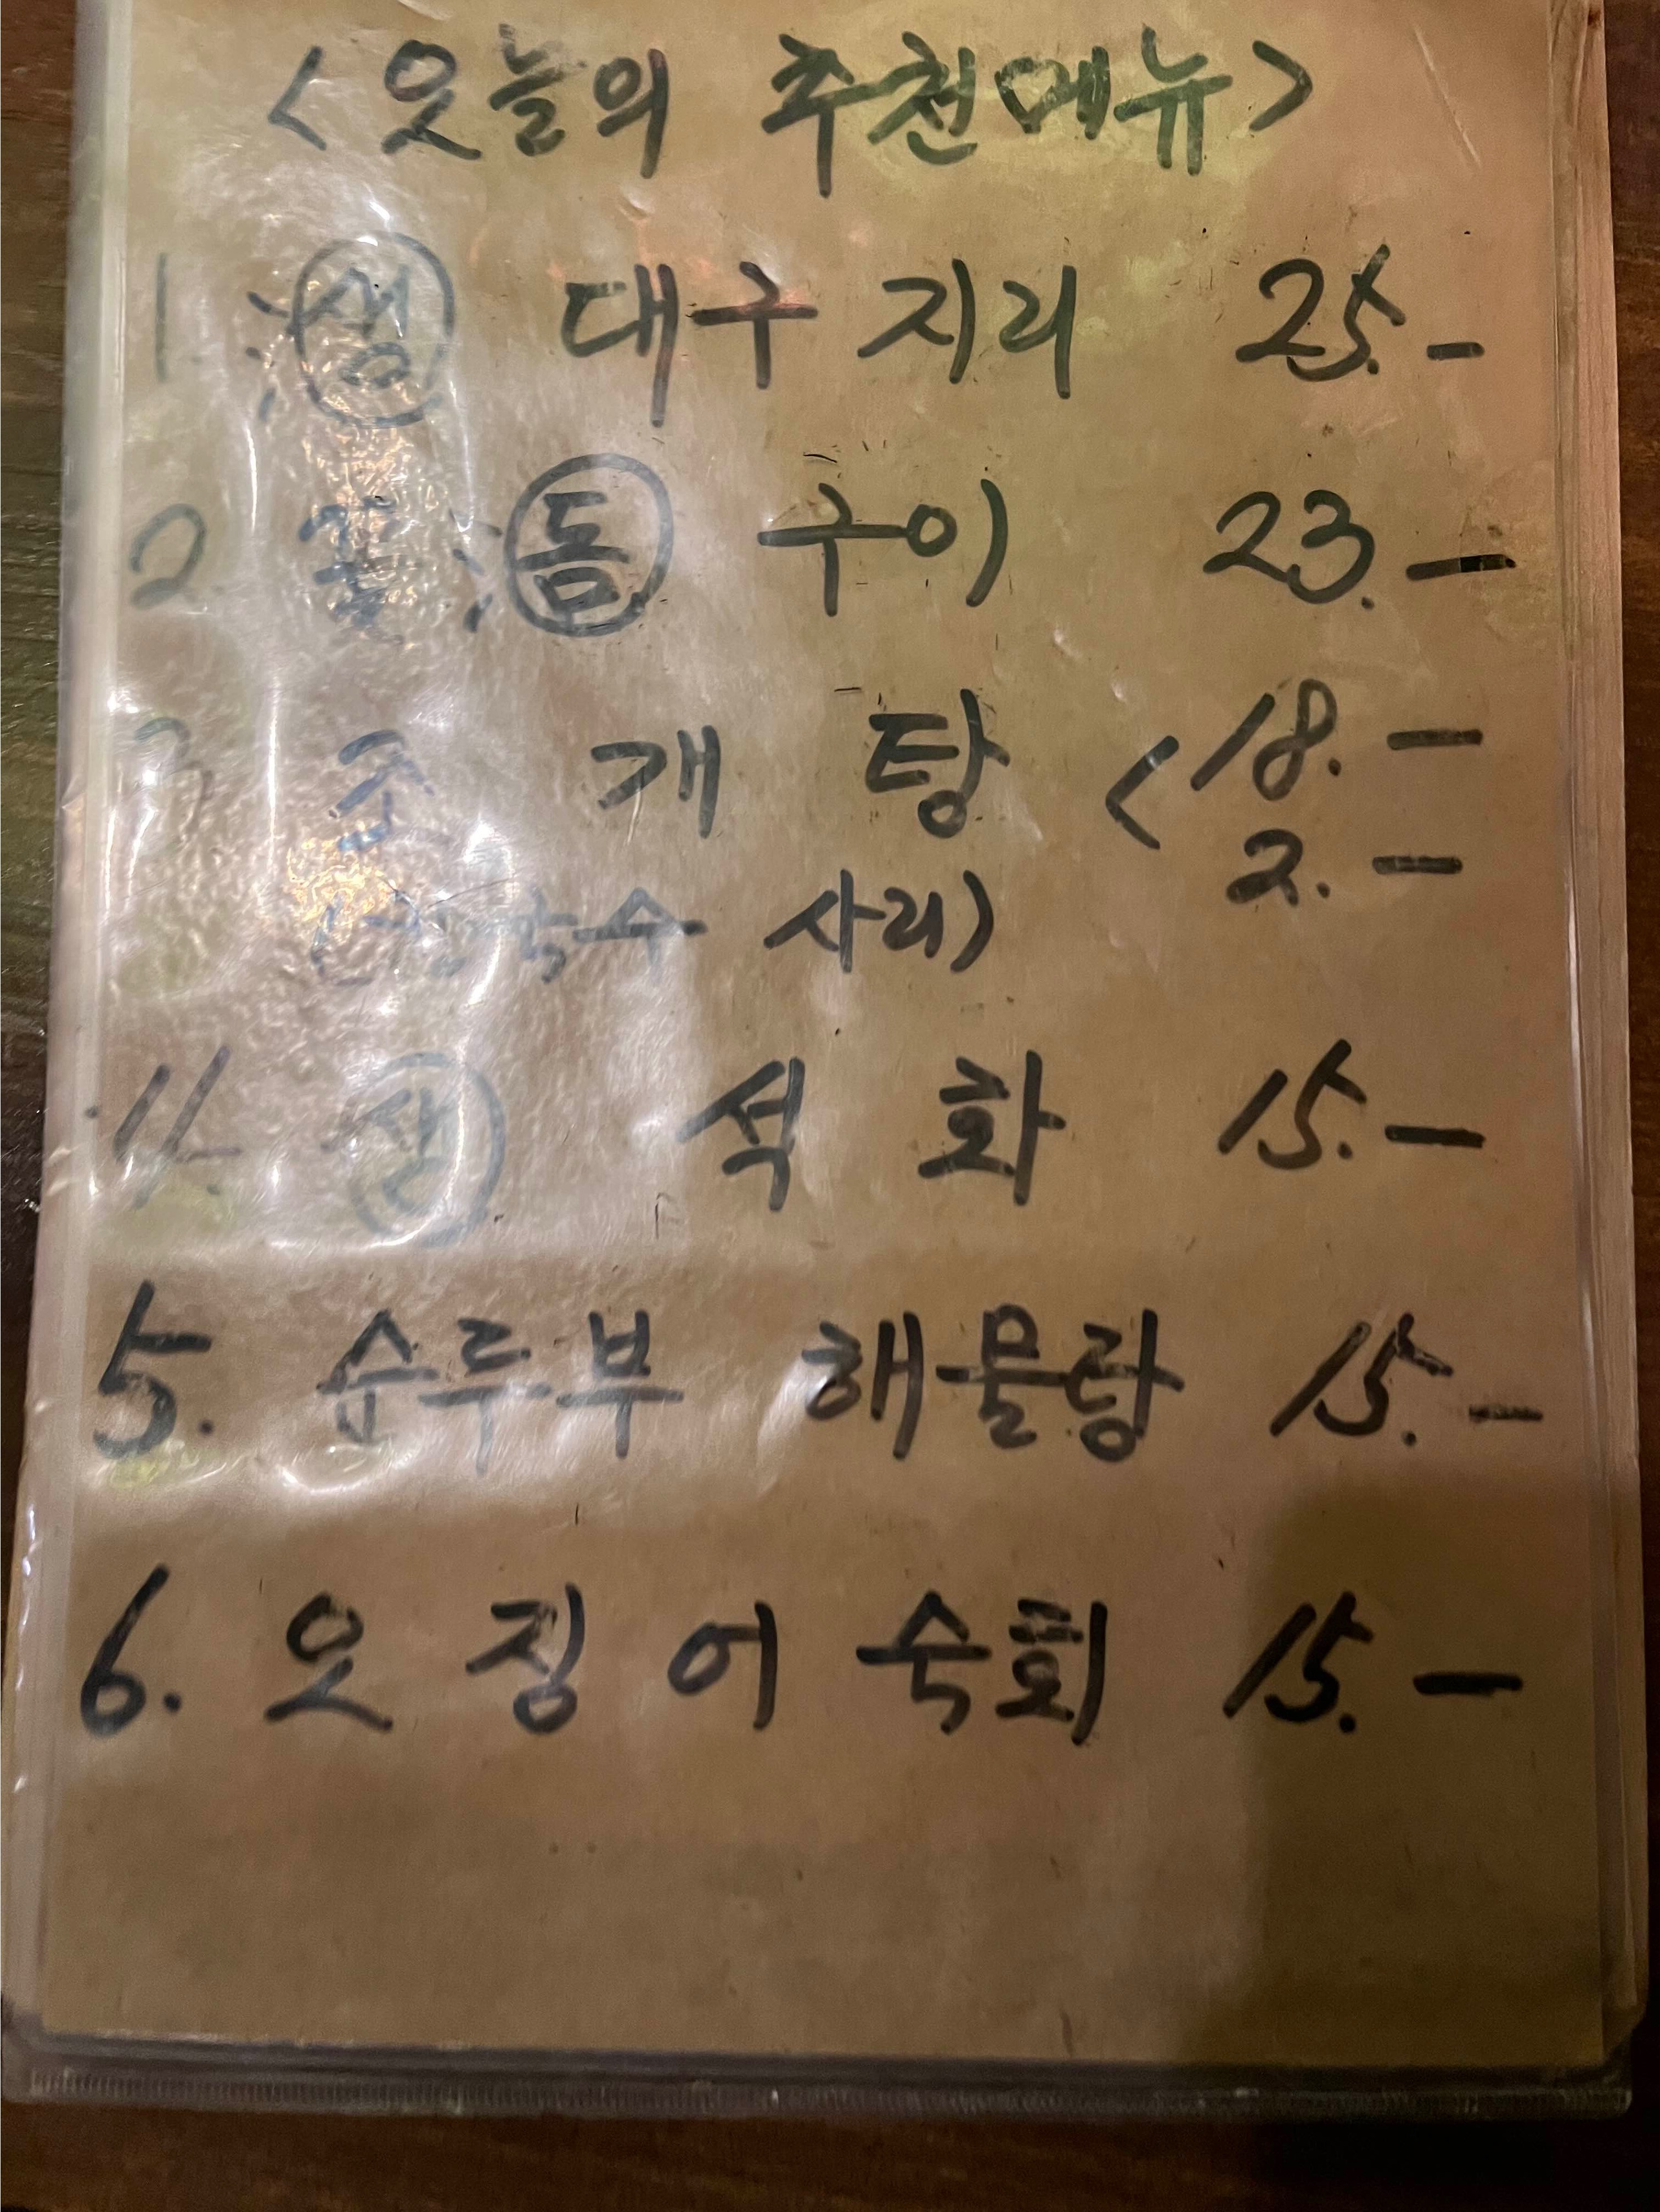 <오늘의 추천메뉴>
1. 생 대구 지리 25.-
2. 꽃 돔 구이 23.-
3 조 개 탕 < 18.-
2.-
국수 사리)
4. 석 화 15.-
5. 순두부 해물랑 15.-
6. 오징어 숙회 15.-